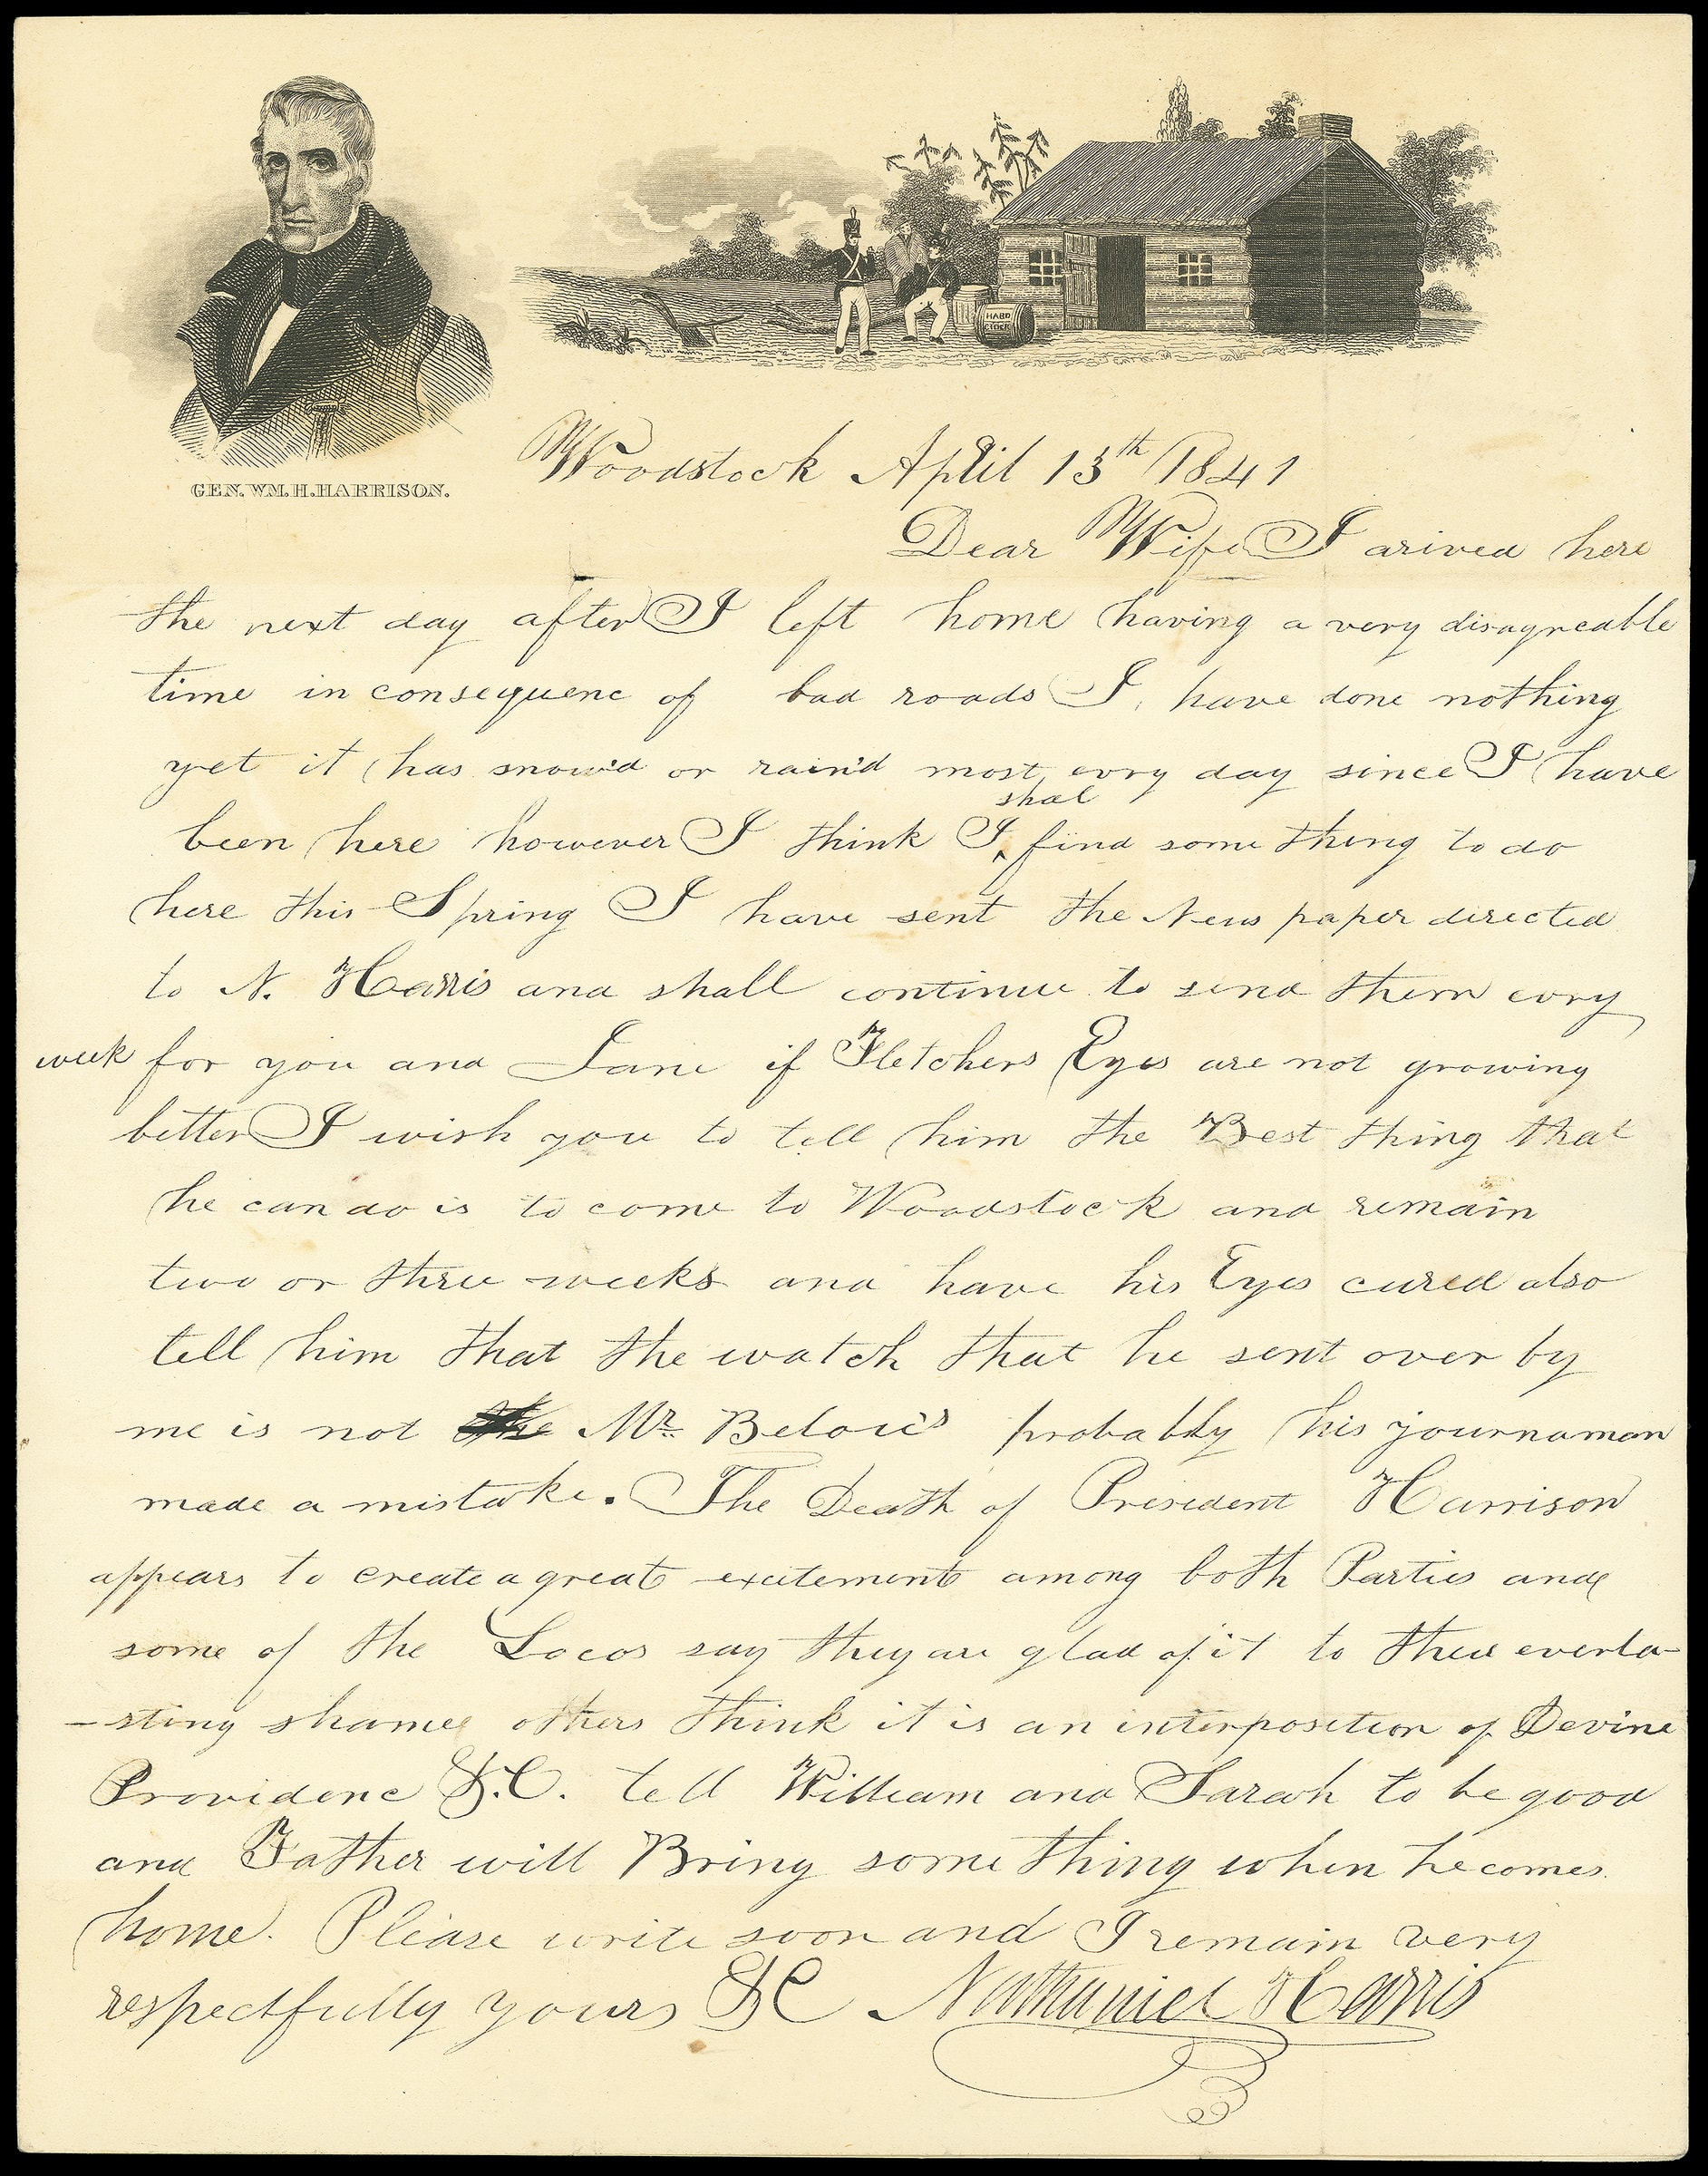 HARD
CIDER
GEN. WM. H. HARRISON.
Woodstock April 13th 1841
Dear Wife I arived here
the next day after I left home having a very disagreable
time in consequenc of bad roads I have done nothing
yet it has snow'd or rain'd most evry day since I have
shal
been here however I think I ‸ find some thing to do
here this Spring I have sent the News paper directed
to N. Harris and shall continue to send them evry
week for you and Jane if Fletchers Eyes are not growing
better I wish you to tell him the Best thing that
he can do is to come to Woodstock and remain
two or three weeks and have his Eyes cured also
tell him that the watch that he sent over by
me is not the Mr. probably his journaman
made a mistake. The Death of President Harrison
appears to create a great excitement among both Parties and
some of the Locos say they are glad of it to their everla-
-sting shame others think it is an interposition of Devine
Providenc &.C. tell William and Sarah to be good
and Father will Bring some thing when he comes
home. Please write soon and I remain very
respectfully yours &C Nathaniel Harris